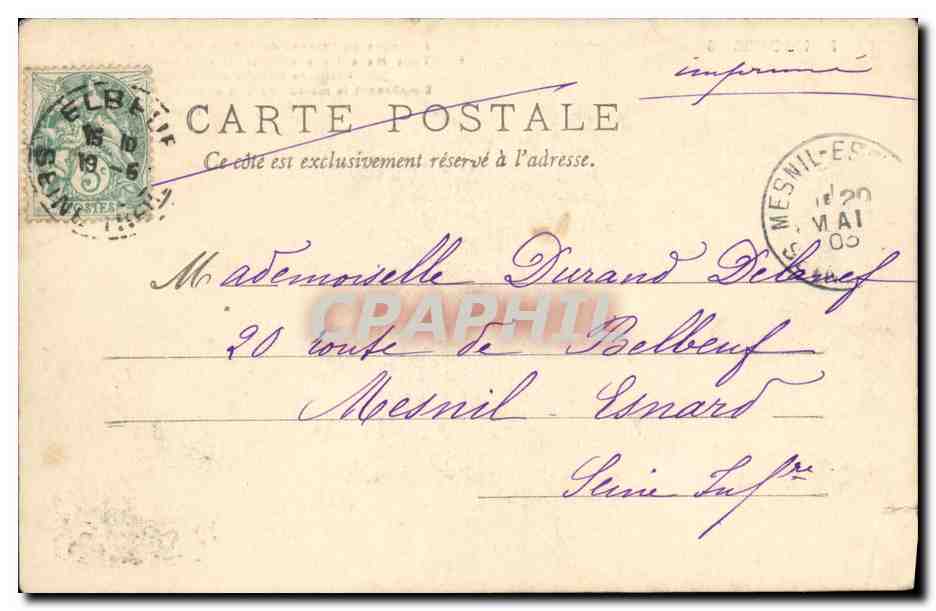 imprimé
CARTE POSTALE
Ce côté est exclusivement réservé à l'adresse.
ELBEUF
15 10
19 -5
SEINE INFRE
5c
POSTES
MESNIL-ES
20
MAI
05
Mademoiselle Durand
CPRAPHIL
20 route de Belbeuf
Mesnil-Esnard
Seine Infre